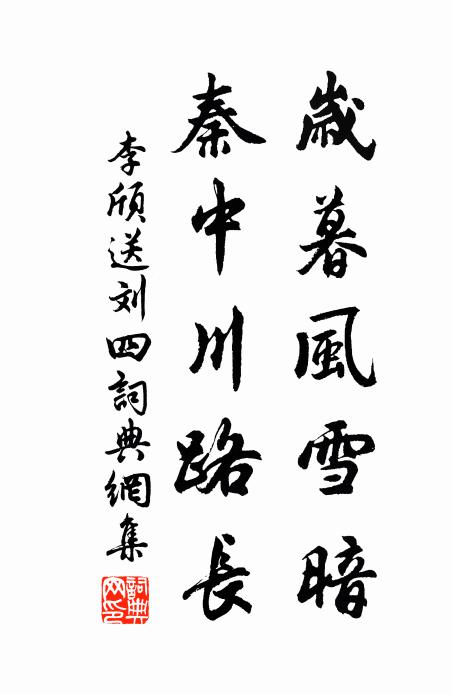 歲暮風雪暗
秦中川路長
李頎送刘四詞典網集
詞典網印